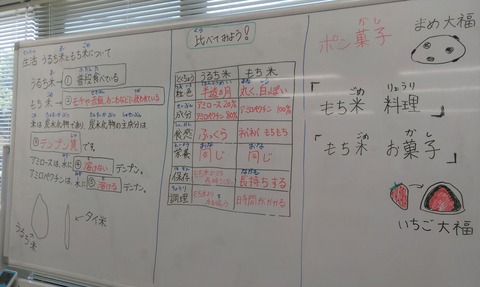 生活 うるち米ともち米について
うるち米 → ① 普段食べている
もち米 → ② もちや赤飯、おこわなどに使われている
米は炭水化物であり、炭水化物の主成分は
③ デンプン質 です。
アミロースは、水に ④ 溶けない デンプン。
アミロペクチンは、水に ⑤ 溶ける デンプン。
うるち米
タイ米
比べてみよう!
とくちょう うるち米 もち米
色 半透明 丸く、白っぽい
成分 アミロース20% アミロペクチン80% アミロペクチン 100%
食感 ふっくら もちもち
栄養 同じ 同じ
保存 長持ちする
調理 時間がかかる
ポン菓子
まめ大福
「もち米 料理
もち米 お菓子」
いちご大福